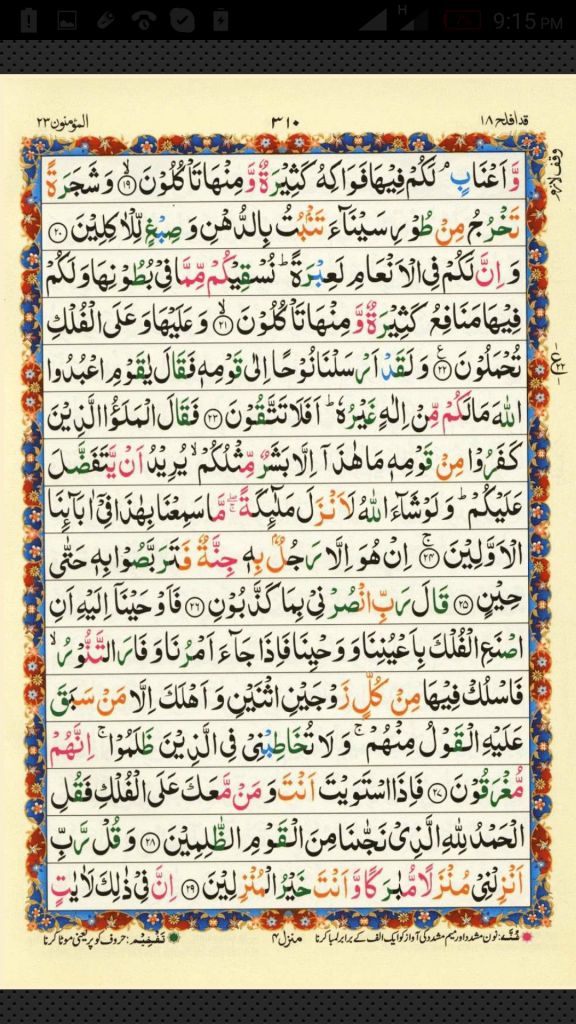 H 7% 9:15 PM
قد افلح ۱۸ ۳۱۰ المؤمنون ۲۳
وقف لازم
وَّاَعْنَابٍ ۘ لَكُمْ فِيْهَا فَوَاكِهُ كَثِيْرَةٌ وَّمِنْهَا تَاْكُلُوْنَ ۙ‏﴿۱۹﴾ وَشَجَرَةً
تَخْرُجُ مِنْ طُوْرِ سَيْنَآءَ تَنْۢبُتُ بِالدُّهْنِ وَصِبْغٍ لِّلْاٰكِلِيْنَ ﴿۲۰﴾
وَاِنَّ لَكُمْ فِى الْاَنْعَامِ لَعِبْرَةً ؕ نُسْقِيْكُمْ مِّمَّا فِىْ بُطُوْنِهَا وَلَكُمْ
فِيْهَا مَنَافِعُ كَثِيْرَةٌ وَّمِنْهَا تَاْكُلُوْنَ ۙ﴿۲۱﴾ وَعَلَيْهَا وَعَلَى الْفُلْكِ
تُحْمَلُوْنَ ﴿۲۲﴾ وَلَقَدْ اَرْسَلْنَا نُوْحًا اِلٰى قَوْمِهٖ فَقَالَ يٰقَوْمِ اعْبُدُوا
اللّٰهَ مَا لَكُمْ مِّنْ اِلٰهٍ غَيْرُهٗ ؕ اَفَلَا تَتَّقُوْنَ ﴿۲۳﴾ فَقَالَ الْمَلَؤُا الَّذِيْنَ
كَفَرُوْا مِنْ قَوْمِهٖ مَا هٰذَاۤ اِلَّا بَشَرٌ مِّثْلُكُمْ ۙ يُرِيْدُ اَنْ يَّتَفَضَّلَ
عَلَيْكُمْ ؕ وَلَوْ شَآءَ اللّٰهُ لَاَنْزَلَ مَلٰٓئِكَةً ۖۚ مَّا سَمِعْنَا بِهٰذَا فِىْۤ اٰبَآئِنَا
الْاَوَّلِيْنَ ۚ﴿۲۴﴾ اِنْ هُوَ اِلَّا رَجُلٌۢ بِهٖ جِنَّةٌ فَتَرَبَّصُوْا بِهٖ حَتّٰى
حِيْنٍ ﴿۲۵﴾ قَالَ رَبِّ انْصُرْنِىْ بِمَا كَذَّبُوْنِ ﴿۲۶﴾ فَاَوْحَيْنَاۤ اِلَيْهِ اَنِ
اصْنَعِ الْفُلْكَ بِاَعْيُنِنَا وَوَحْيِنَا فَاِذَا جَآءَ اَمْرُنَا وَفَارَ التَّنُّوْرُ ۙ
فَاسْلُكْ فِيْهَا مِنْ كُلٍّ زَوْجَيْنِ اثْنَيْنِ وَاَهْلَكَ اِلَّا مَنْ سَبَقَ
عَلَيْهِ الْقَوْلُ مِنْهُمْ ۚ وَلَا تُخَاطِبْنِىْ فِى الَّذِيْنَ ظَلَمُوْا ۚ اِنَّهُمْ
مُّغْرَقُوْنَ ﴿۲۷﴾ فَاِذَا اسْتَوَيْتَ اَنْتَ وَمَنْ مَّعَكَ عَلَى الْفُلْكِ فَقُلِ
الْحَمْدُ لِلّٰهِ الَّذِىْ نَجّٰٮنَا مِنَ الْقَوْمِ الظّٰلِمِيْنَ ﴿۲۸﴾ وَقُلْ رَّبِّ
اَنْزِلْنِىْ مُنْزَلًا مُّبٰرَكًا وَّاَنْتَ خَيْرُ الْمُنْزِلِيْنَ ﴿۲۹﴾ اِنَّ فِىْ ذٰلِكَ لَاٰيٰتٍ
غُنَّه: نون مشدد اور میم مشدد کی آواز کو ایک الف کے برابر لمبا کرنا منزل ۴ تَفْخِيْم: حروف کو پُر یعنی موٹا کرنا